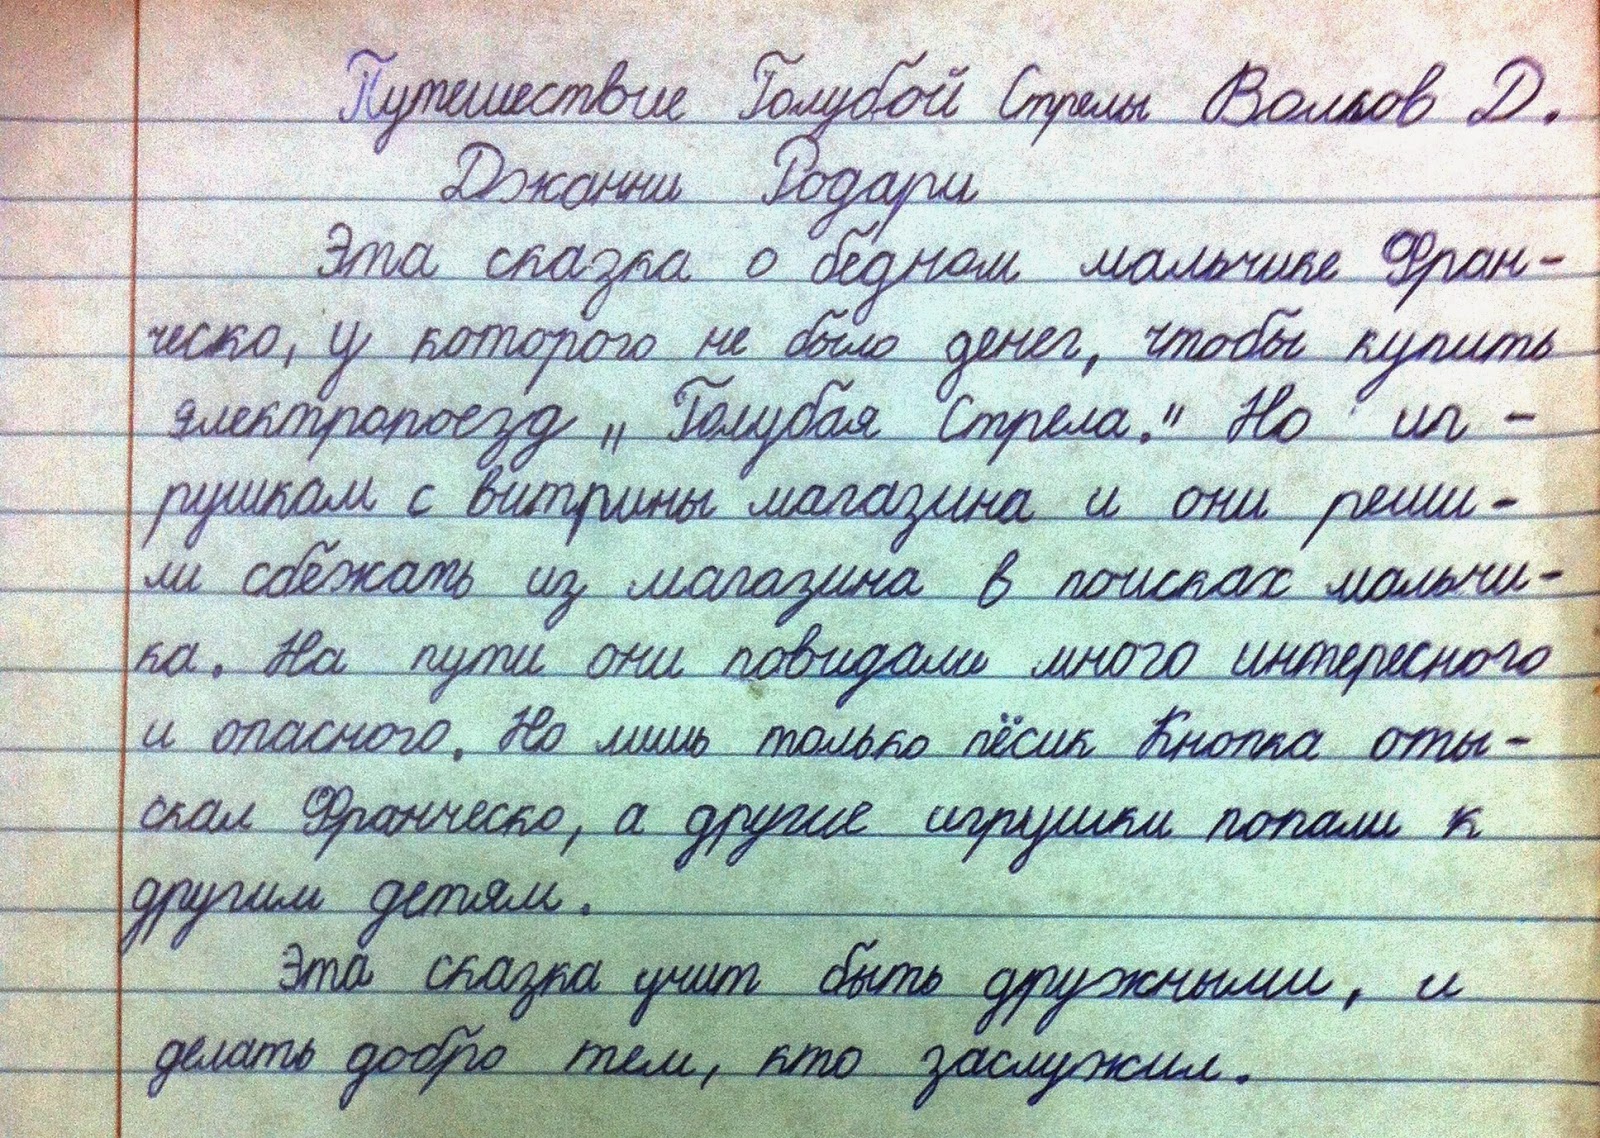 Путешествие Голубой Стрелы Волков Д.
Джанни Родари
Эта сказка о бедном мальчике Фран-
ческо, у которого не было денег, чтобы купить
электропоезд „Голубая Стрела." Но иг-
рушкам с витрины магазина и они реши-
ли сбежать из магазина в поисках мальчи-
ка. На пути они повидали много интересного
и опасного. Но лишь только пёсик Кнопка оты-
скал Франческо, а другие игрушки попали к
другим детям.
Эта сказка учит быть дружными, и
делать добро тем, кто заслужил.